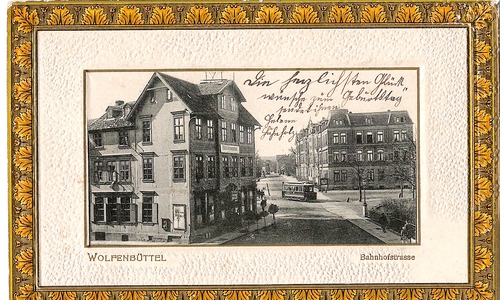 Die herzlichsten Glück
wünsche zum "Geburtstag"
Helene
WOLFENBÜTTEL
Bahnhofstrasse